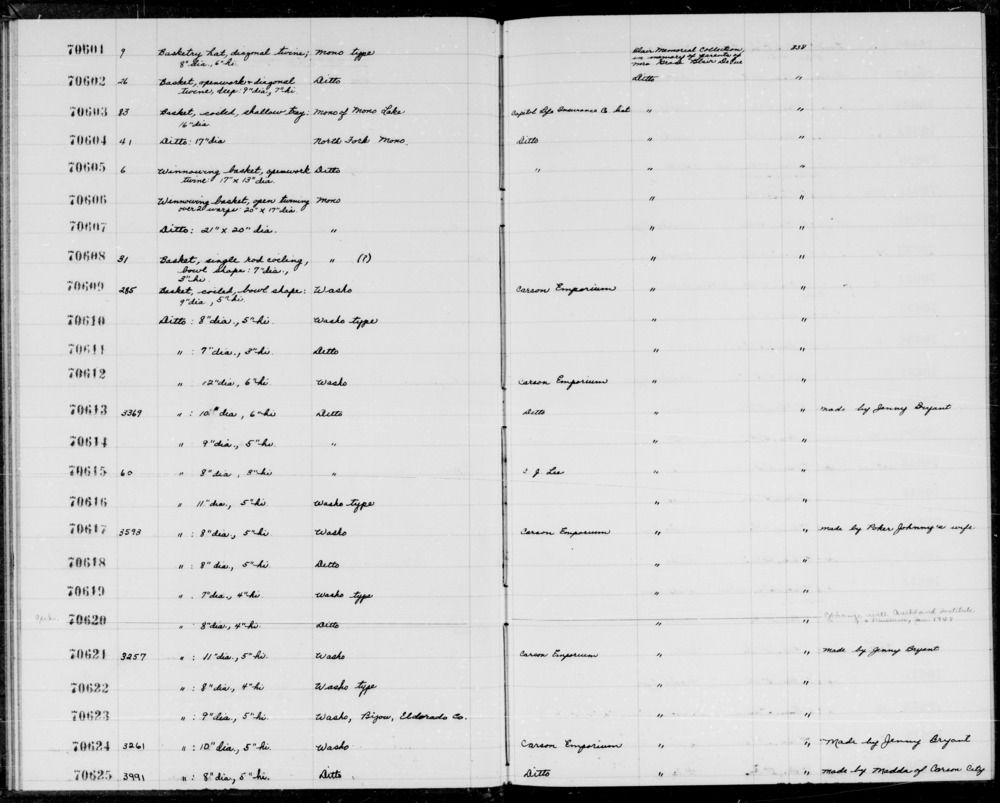 70601 9 Basketry hat, diagonal twine; Mono type Blair Memorial Collection, 238
8" dia, 6" hi in memory of parents of
Mrs Grace Blair DePue
70602 26 Basket, openwork & diagonal Ditto Ditto "
twine, deep: 9" dia, 7" hi.
70603 83 Basket, coiled, shallow tray: Mono of Mono Lake Capitol Life Insurance Co. " "
16" dia
70604 41 Ditto: 17" dia North Fork Mono. Ditto " "
70605 6 Winnowing basket, openwork Ditto " " "
twine: 17" x 13" dia.
70606 Winnowing basket, open twining Mono " "
over 2 warps: 20" x 17" dia.
70607 Ditto: 21" x 20" dia. " " "
70608 31 Basket, single rod coiling, " (?) " "
bowl shape: 7" dia.,
3" hi
70609 285 Basket, coiled, bowl shape: Washo Carson Emporium " "
9" dia, 5" hi.
70610 Ditto: 8" dia., 5" hi. Washo type " "
70611 " : 7" dia., 3" hi. Ditto " "
70612 " 12" dia, 6" hi Washo Carson Emporium " "
70613 3369 " : 10" dia, 6" hi Ditto Ditto " " made by Jenny Bryant
70614 " 9" dia., 5" hi. " " "
70615 60 " 8" dia, 3" hi " J. Lee " "
70616 " 11" dia., 5" hi. Washo type " "
70617 3593 " : 8" dia., 5" hi Washo Carson Emporium " " made by Poker Johnny's wife
70618 " : 8" dia., 5" hi Ditto " "
70619 " . 7" dia., 4" hi. Washo type " "
70620 " 8" dia, 4" hi. Ditto " " with Auckland Institute
& Museum, 1948
70621 3257 " : 11" dia, 5" hi. Washo Carson Emporium " " made by Jenny Bryant
70622 " : 8" dia, 4" hi Washo type " "
70623 " : 9" dia, 5" hi. Washo, Bijou, Eldorado Co. " "
70624 3261 " : 10" dia, 5" hi. Washo Carson Emporium " " Made by Jenny Bryant
70625 3991 " : 8" dia, 5" hi. Ditto Ditto " " made by Madda of Carson City